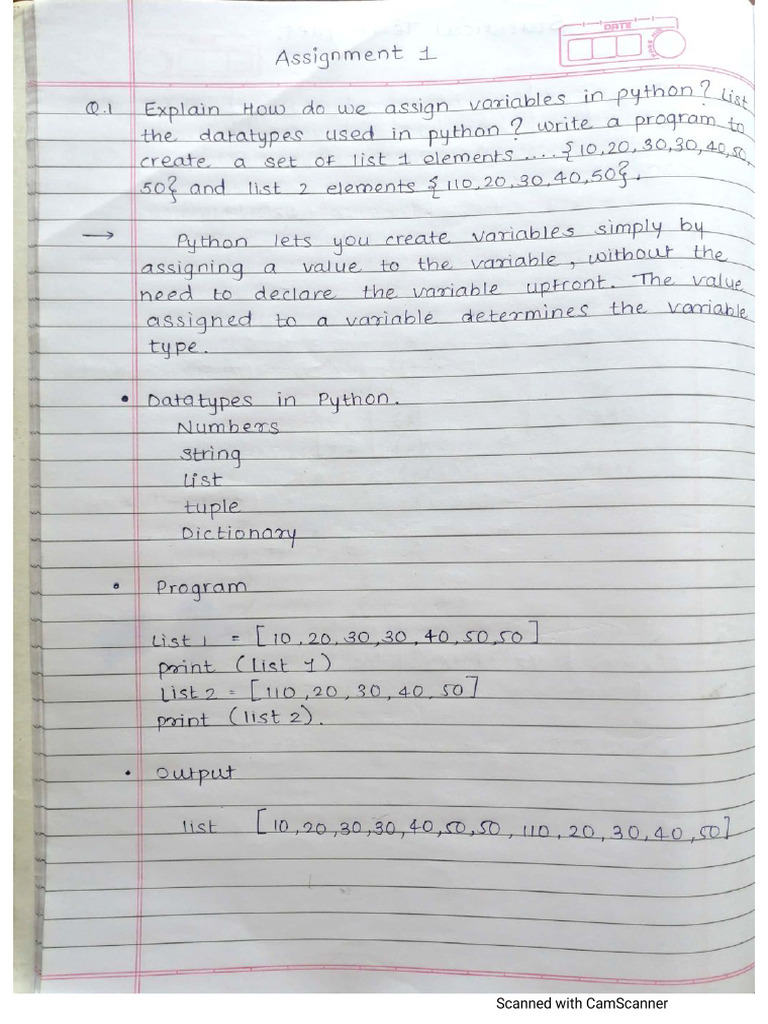 DATE
Assignment 1
Q.1 Explain How do we assign variables in python? List
the datatypes used in python? write a program to
create a set of list 1 elements ....{10,20,30,30,40,50,
50} and list 2 elements {110,20,30,40,50}.
→ Python lets you create variables simply by
assigning a value to the variable, without the
need to declare the variable upfront. The value
assigned to a variable determines the variable
type.
• Datatypes in Python.
Numbers
String
List
tuple
Dictionary
• Program
List 1 = [10,20,30,30,40,50,50]
print (list 1)
List 2 = [110,20,30,40,50]
print (list 2).
• Output
list [10,20,30,30,40,50,50,110,20,30,40,50]
Scanned with CamScanner